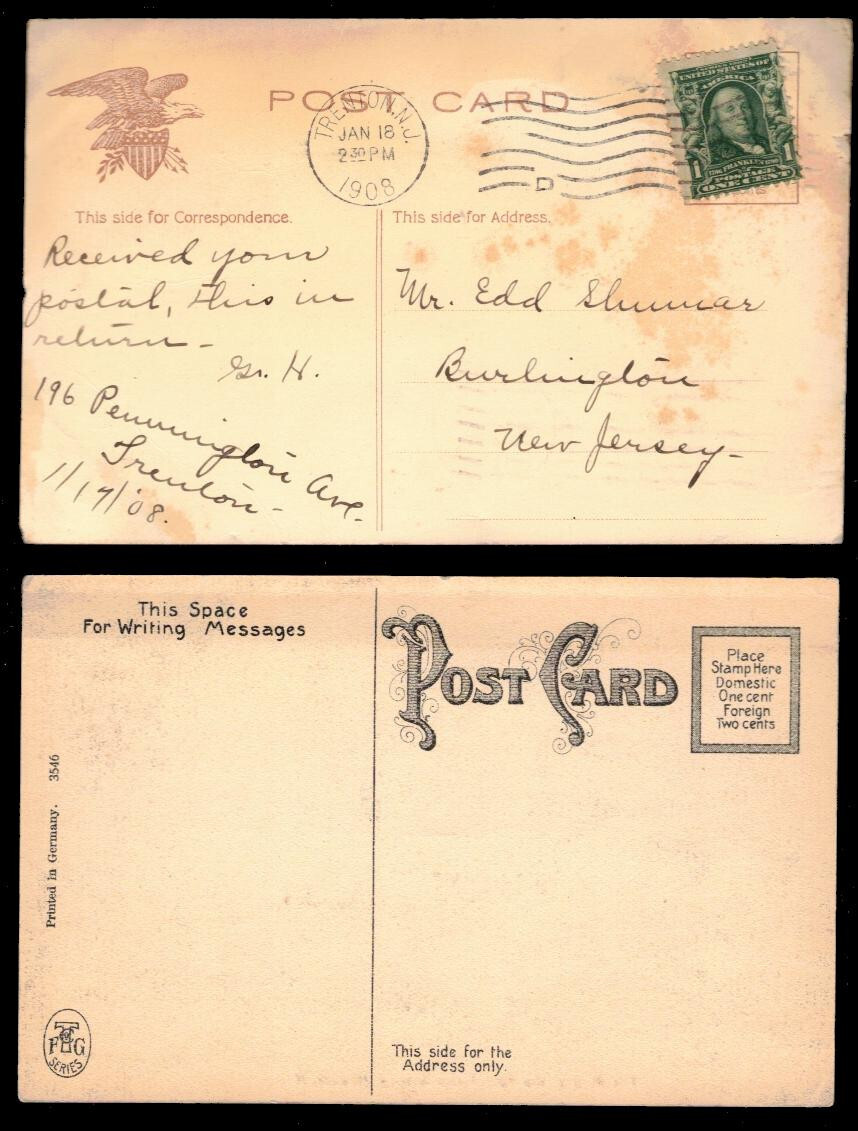 POST CARD
TRENTON, N.J.
JAN 18
2 30 PM
1908
D
UNITED STATES OF
AMERICA
1 FRANKLIN 1
POSTAGE
ONE CENT
This side for Correspondence.
This side for Address.
Received your
postal, this in
return -
G. H.
196 Pennington Ave.
Trenton -
1/17/'08.
Mr. Edd Shumar
Burlington
New Jersey -
This Space
For Writing Messages
POST CARD
Place
Stamp Here
Domestic
One cent
Foreign
Two cents
Printed in Germany. 3546
SERIES
This side for the
Address only.